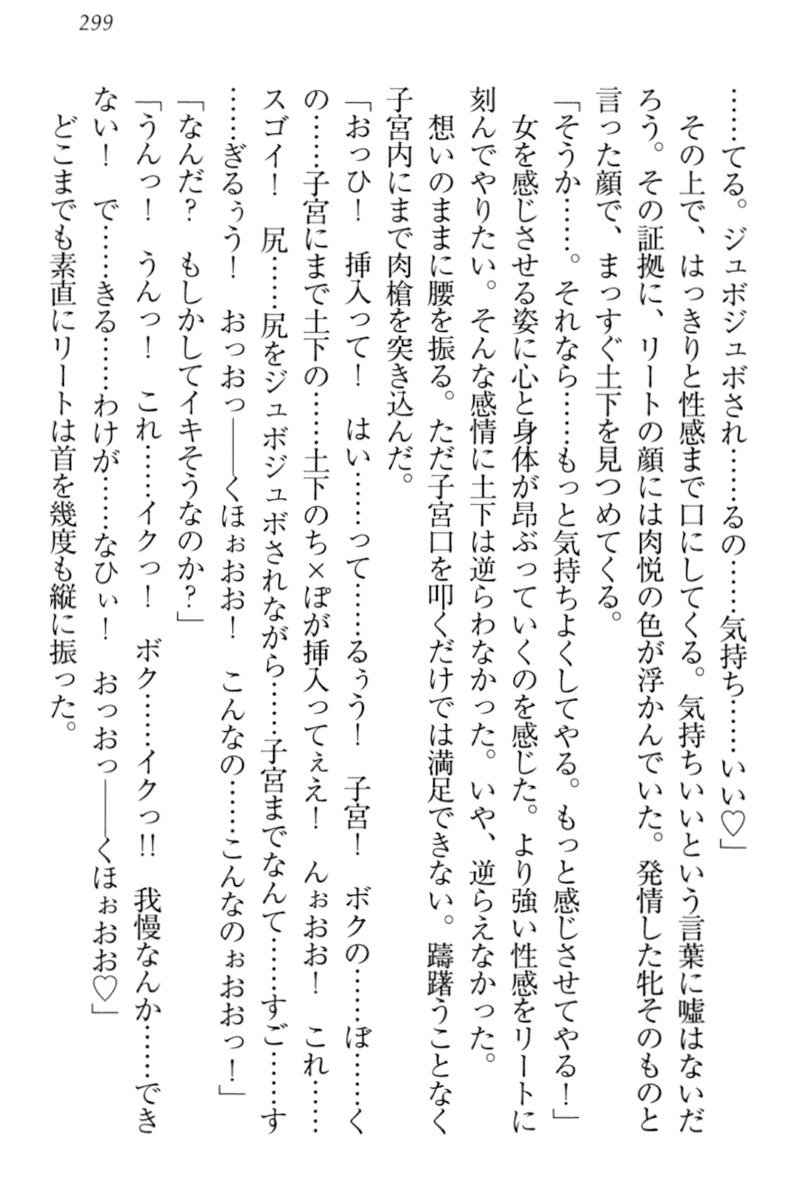 299
……てる。ジュボジュボされ……るの……気持ち……いい♡」
その上で、はっきりと性感まで口にしてくる。気持ちいいという言葉に嘘はないだ
ろう。その証拠に、リートの顔には肉悦の色が浮かんでいた。発情した牝そのものと
言った顔で、まっすぐ土下を見つめてくる。
「そうか……。それなら……もっと気持ちよくしてやる。もっと感じさせてやる！」
女を感じさせる姿に心と身体が昂ぶっていくのを感じた。より強い性感をリートに
刻んでやりたい。そんな感情に土下は逆らわなかった。いや、逆らえなかった。
想いのままに腰を振る。ただ子宮口を叩くだけでは満足できない。躊躇うことなく
子宮内にまで肉槍を突き込んだ。
「おっひ！　挿入って！　はい……って……るぅう！　子宮！　ボクの……ぼ……く
の……子宮にまで土下の……土下のち×ぽが挿入ってぇえ！　んぉおお！　これ……
スゴイ！　尻……尻をジュボジュボされながら……子宮までなんて……すご……す
……ぎるぅう！　おっおっ――くほぉおお！　こんなの……こんなのぉおおっ！」
「なんだ？　もしかしてイキそうなのか？」
「うんっ！　うんっ！　これ……イクっ！　ボク……イクっ!!　我慢なんか……でき
ない！　で……きる……わけが……なひぃ！　おっおっ――くほぉおお♡」
どこまでも素直にリートは首を幾度も縦に振った。